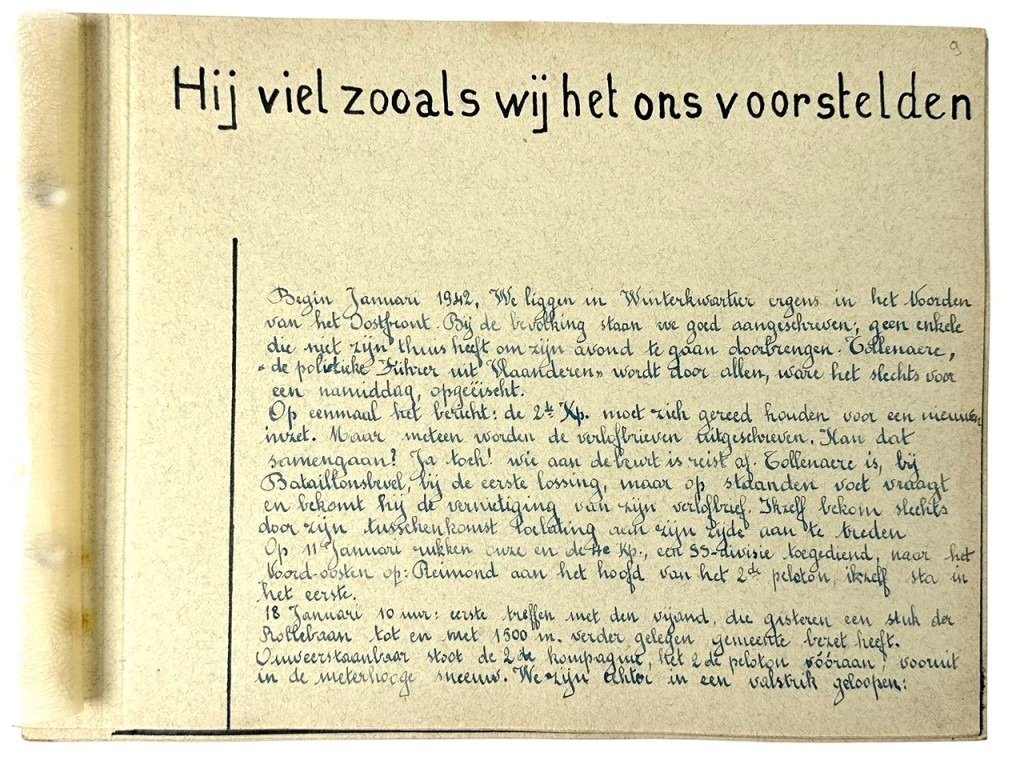 9
Hij viel zooals wij het ons voorstelden
Begin Januari 1942. We liggen in Winterkwartier ergens in het Noorden
van het Oostfront. Bij de bevolking staan we goed aangeschreven; geen enkele
die niet zijn thuis heeft om zijn avond te gaan doorbrengen. Tollenaere,
"de politieke Führer uit Vlaanderen" wordt door allen, ware het slechts voor
een namiddag, opgeëischt.
Op eenmaal het bericht: de 2de Kp. moet zich gereed houden voor een nieuwen
inzet. Maar meteen worden de verlofbrieven uitgeschreven. Kan dat
samengaan? Ja toch! wie aan de beurt is reist af. Tollenaere is, bij
Bataillonsbevel, bij de eerste lossing, maar op staanden voet vraagt
en bekomt hij de vernietiging van zijn verlofbrief. Ikzelf bekom slechts
door zijn tusschenkomst toelating aan zijn zijde aan te treden
Op 11 Januari rukken onze en de 4e Kp., een SS-divisie toegediend, naar het
Noord-oosten op: Reimond aan het hoofd van het 2de peloton, ikzelf sta in
het eerste.
18 Januari 10 uur: eerste treffen met den vijand, die gisteren een stuk der
Rollebaan tot en met 1500 m. verder gelegen gemeente bezet heeft.
Onweerstaanbaar stoot de 2de kompagnie, het 2de peloton vóóraan, vooruit
in de meterhooge sneeuw. We zijn echter in een valstrik geloopen: